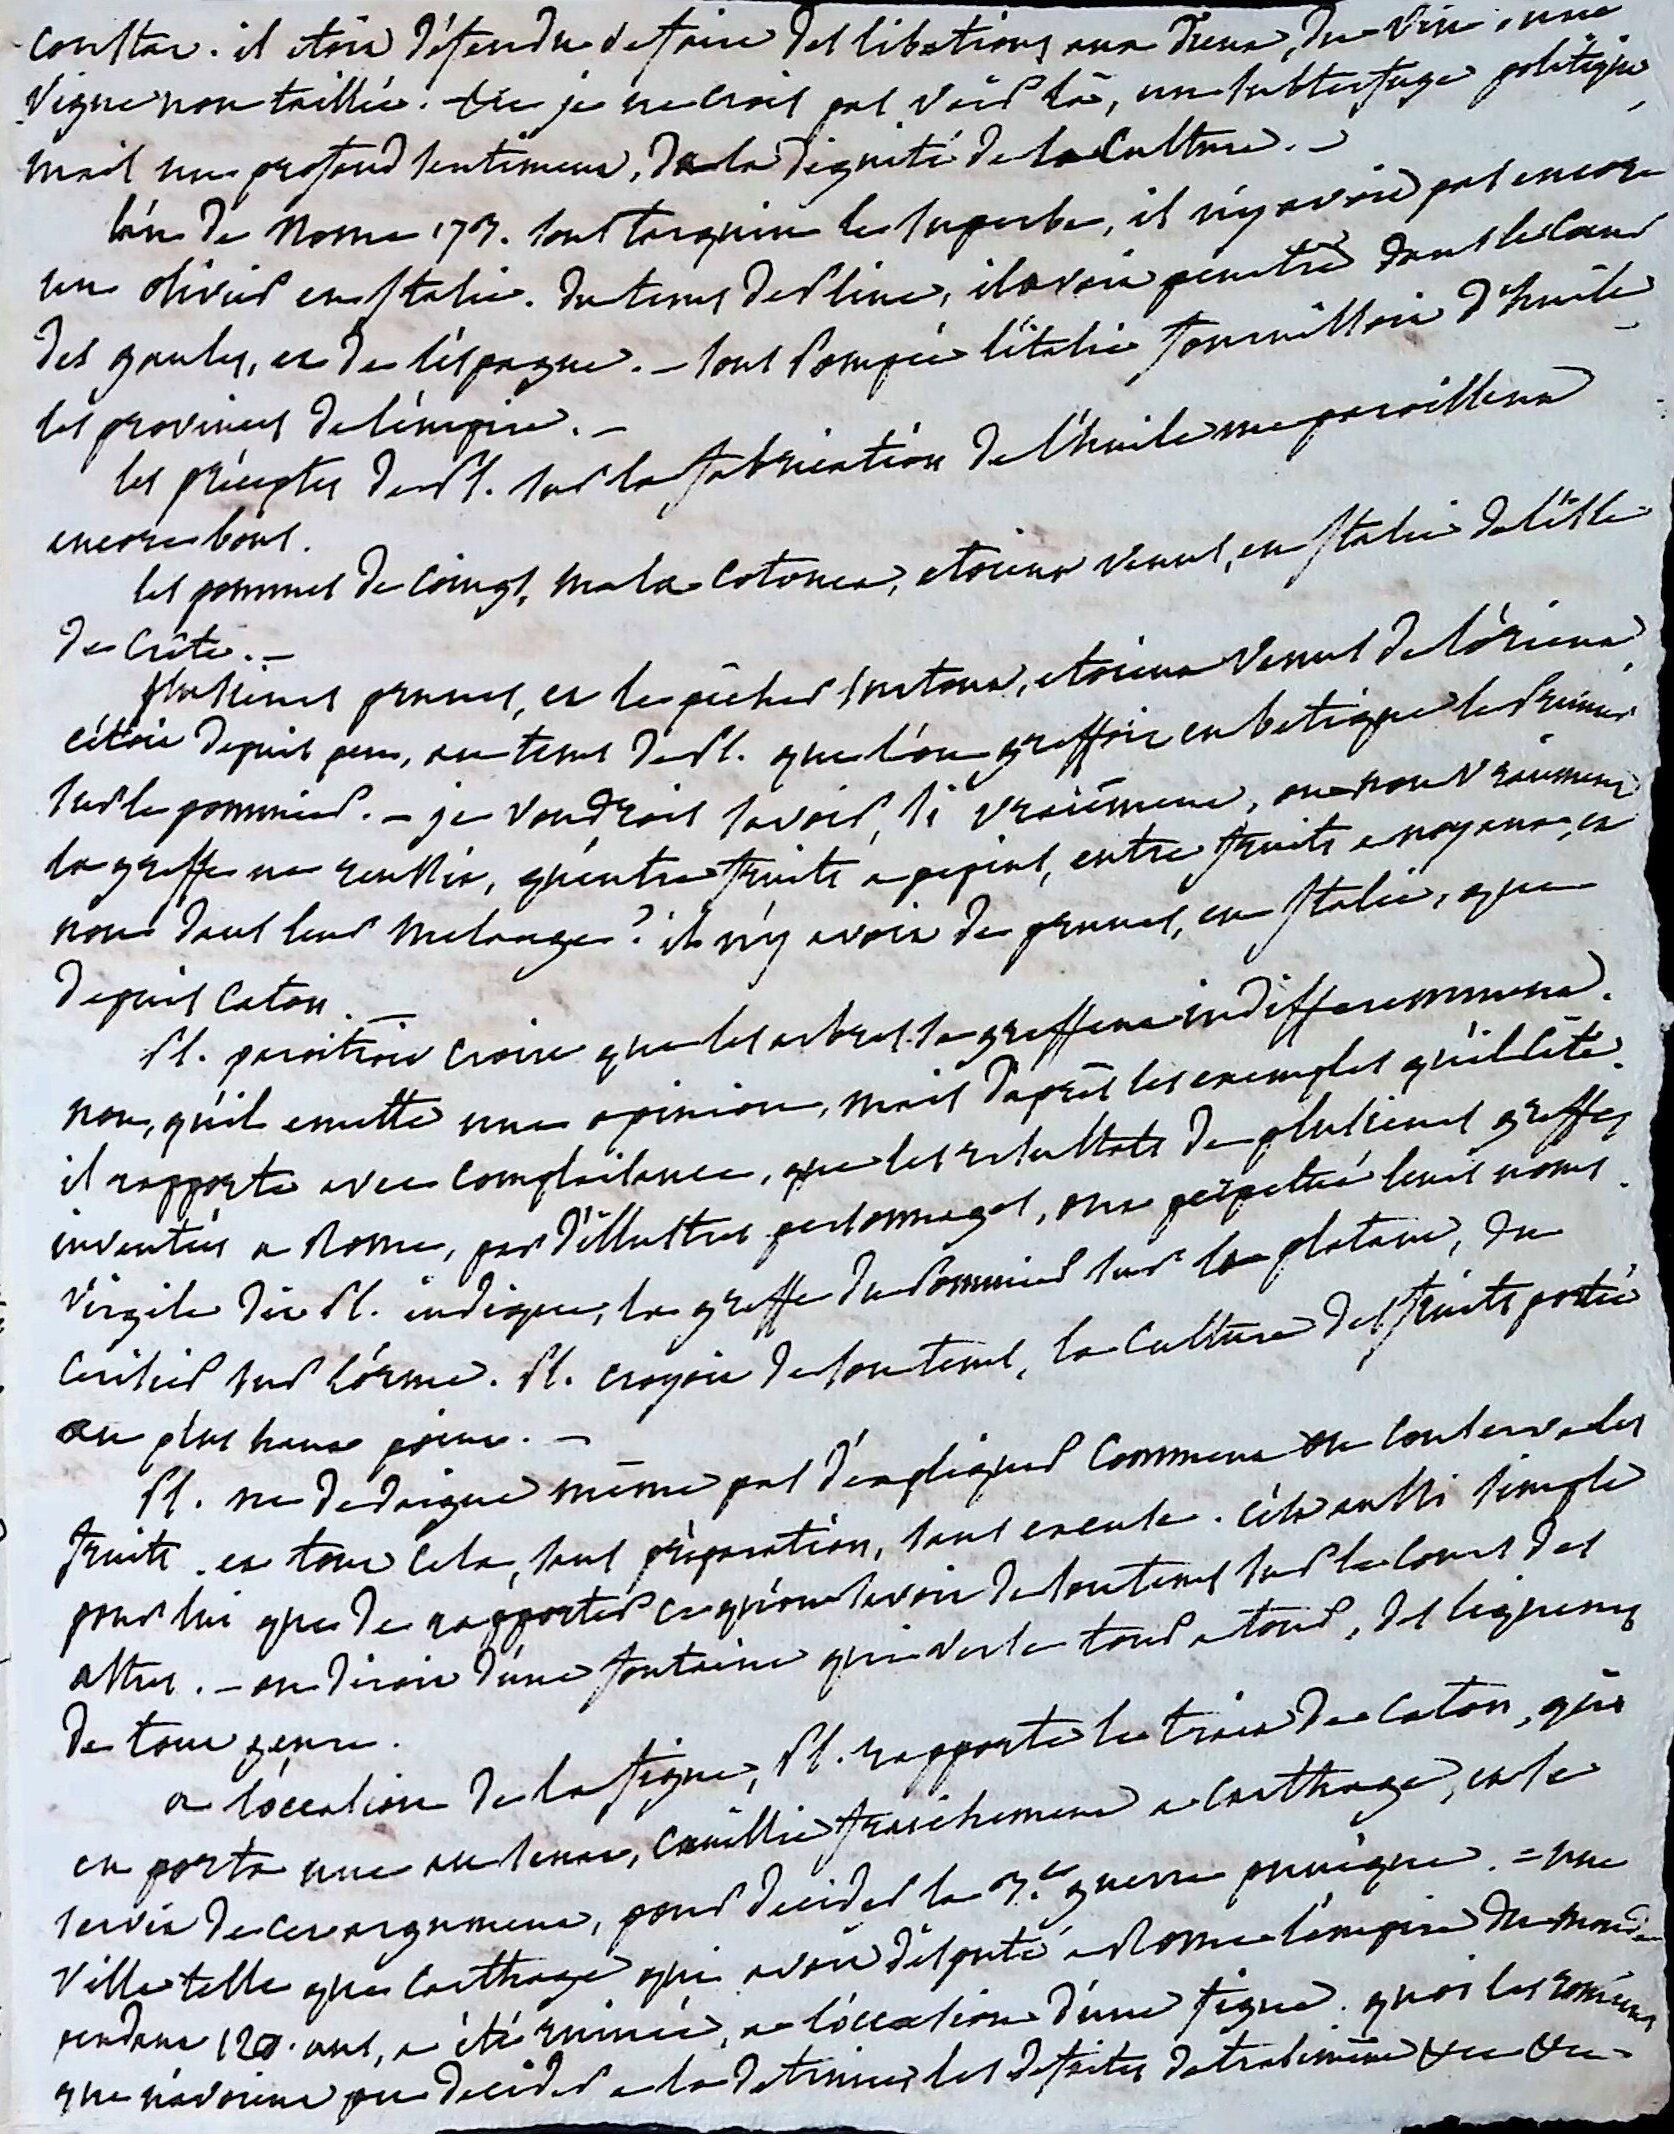 constan. il étoit défendu de faire des libations aux Dieux, du vin d'une
vigne non taillée. &c je ne crois pas voir là, un subterfuge politique,
mais un profond sentiment, de la dignité de la Culture. —
l'an de Rome 173. sous tarquin le superbe, il n'y avoit pas encore
un olivier en Italie. du tems de Pline, il avoit penetré dans le Cœur
des gaules, et de l'éspagne. — sous Pompée l'italie fournissoit d'huile
les provinces de l'émpire. —
les préceptes de Pl. sur la fabrication de l'huile me paroissent
encore bons.
les pommes de Coings, mala Cotonea, etoient venus, en Italie de l'isle
de Crête. —
plusieurs prunes, et le pêcher surtout, etoient venus de l'órient,
c'étoit depuis peu, au tems de Pl. que l'on greffoit en betique le prunier
sur le pommier. — je voudrois savoir, si vraiment, ou non vraiment
la greffe ne reussit, qu'entre fruits a pepins, entre fruits a noyaux, et
non dans leur melange? il n'y avoit de prunes, en Italie, que
depuis Caton. —
Pl. paroitroit croire que les arbres se greffent indifferemment.
non, qu'il emette une opinion, mais d'aprês les exemples qu'il cite.
il rapporte avec complaisance, que les resultats de plusieurs greffes
inventées a Rome, par d'illustres personnages, ont perpetué leurs noms.
Virgile dit Pl. indique, la greffe du Pommier sur le platane, du
Cerisier sur l'órme. Pl. croyoit de son tems, la Culture des fruits portée
au plus haut point. —
Pl. ne dedaigne même pas d'expliquer Comment on conserve les
fruits. et tout cela, sans préparation, sans excuse. c'est aussi simple
pour lui que de rapporter ce qu'on savoit de son tems sur le Cours des
astres. — on diroit d'une fontaine qui verse tour a tour, des liqueurs
de tout genre.
a l'óccasion de la figue, Pl. rapporte le trait de Caton, qui
en porta une au senat, Cueillie fraichement a Carthage, et se
servit de cet argument, pour decider la 3.e guerre punique. = une
Ville telle que Carthage qui avoit disputé a Rome l'émpire du monde
pendant 120. ans, a été ruinée, a l'óccasion d'une figue. quoi les romains
que n'avoient pu decider a la detruire, les defaites de trasimêne &c &c